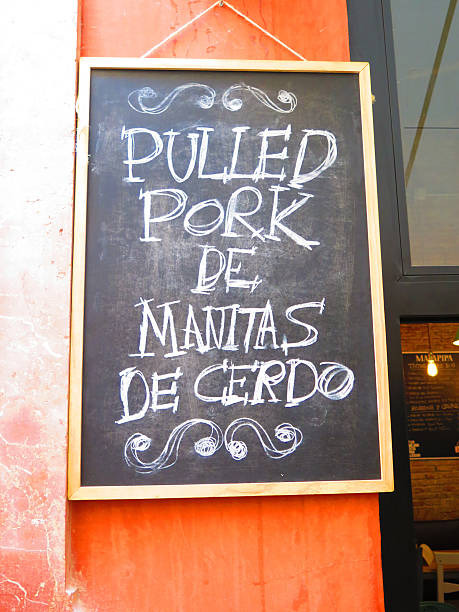 PULLED
PORK
DE
MANITAS
DE CERDO
MALAPIPA